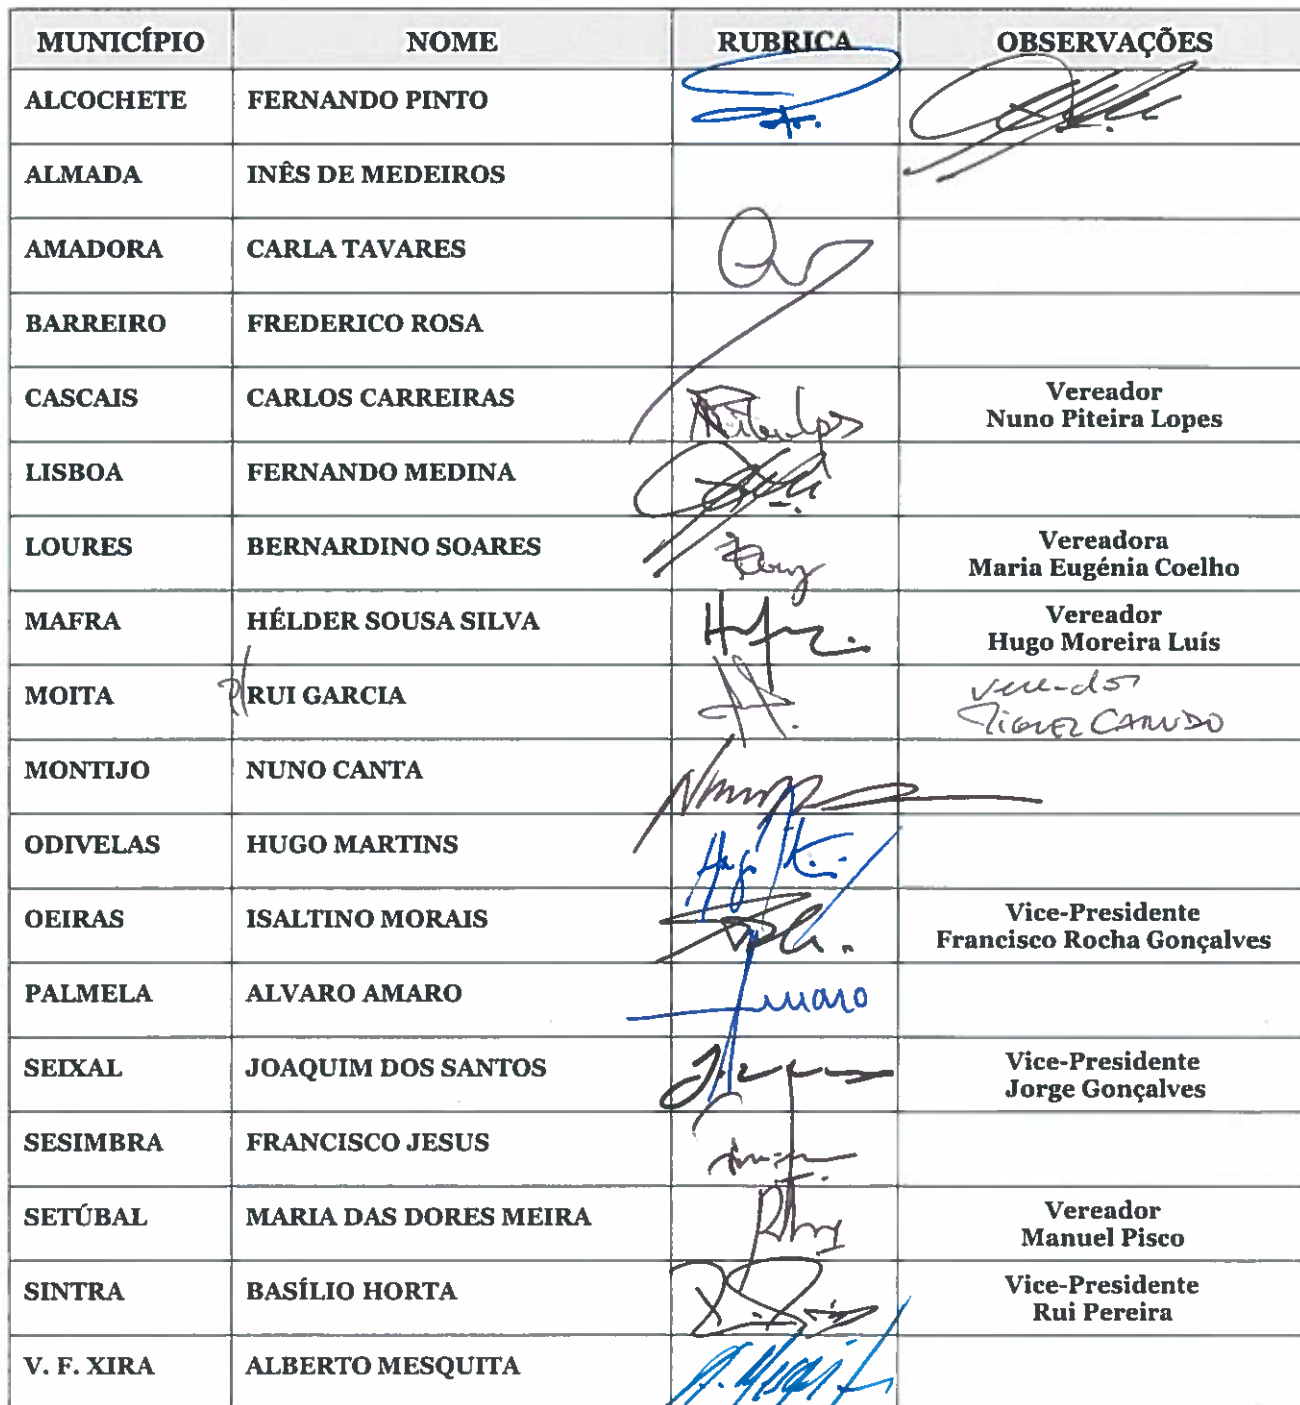 MUNICÍPIO NOME RUBRICA OBSERVAÇÕES
ALCOCHETE FERNANDO PINTO
ALMADA INÊS DE MEDEIROS
AMADORA CARLA TAVARES
BARREIRO FREDERICO ROSA
CASCAIS CARLOS CARREIRAS Vereador
Nuno Piteira Lopes
LISBOA FERNANDO MEDINA
LOURES BERNARDINO SOARES Vereadora
Maria Eugénia Coelho
MAFRA HÉLDER SOUSA SILVA Vereador
Hugo Moreira Luís
MOITA P/ RUI GARCIA Vereador
MONTIJO NUNO CANTA
ODIVELAS HUGO MARTINS
OEIRAS ISALTINO MORAIS Vice-Presidente
Francisco Rocha Gonçalves
PALMELA ALVARO AMARO Amaro
SEIXAL JOAQUIM DOS SANTOS Vice-Presidente
Jorge Gonçalves
SESIMBRA FRANCISCO JESUS
SETÚBAL MARIA DAS DORES MEIRA Vereador
Manuel Pisco
SINTRA BASÍLIO HORTA Vice-Presidente
Rui Pereira
V. F. XIRA ALBERTO MESQUITA